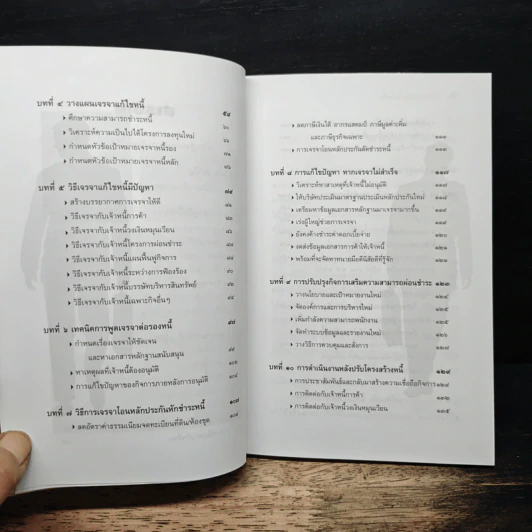 บทที่ ๔ วางแผนเจรจาแก้ไขหนี้ ๕๔
ศึกษาความสามารถชำระหนี้
วิเคราะห์ความเป็นไปได้โครงการลงทุนใหม่
กำหนดหัวข้อเป้าหมายเจรจาหนี้รอง
กำหนดหัวข้อเป้าหมายเจรจาหนี้หลัก
บทที่ ๕ วิธีเจรจาแก้ไขหนี้มีปัญหา
สร้างบรรยากาศการเจรจาให้ดี
วิธีเจรจากับเจ้าหนี้การค้า
วิธีเจรจากับเจ้าหนี้วงเงินหมุนเวียน
วิธีเจรจากับเจ้าหนี้โครงการผ่อนชำระ
วิธีเจรจากับเจ้าหนี้แผนฟื้นฟูกิจการ
วิธีเจรจากับเจ้าหนี้ระหว่างการฟ้องร้อง
วิธีเจรจากับเจ้าหนี้บรรษัทบริหารสินทรัพย์
วิธีเจรจากับเจ้าหนี้เฉพาะกิจอื่นๆ
บทที่ ๖ เทคนิคการพูดเจรจาต่อรองหนี้
กำหนดเรื่องเจรจาให้ชัดเจน
และหาเอกสารหลักฐานสนับสนุน
หาเหตุผลที่เจ้าหนี้ต้องอนุมัติ
การแก้ไขปัญหาของกิจการภายหลังการอนุมัติ
บทที่ ๗ วิธีการเจรจาโอนหลักประกันหักชำระหนี้ ๑๐๗
ลดอัตราค่าธรรมเนียมจดทะเบียนที่ดิน/ห้องชุด
ลดภาษีเงินได้ อากรแสตมป์ ภาษีมูลค่าเพิ่ม
และภาษีธุรกิจเฉพาะ
การเจรจาโอนหลักประกันตัดชำระหนี้
บทที่ ๘ การแก้ไขปัญหา หากเจรจาไม่สำเร็จ ๑๑๗
วิเคราะห์หาสาเหตุที่เจ้าหนี้ไม่อนุมัติ
ให้บริษัทประเมินมาตรฐานประเมินหลักประกันใหม่
เตรียมหาข้อมูลเอกสารหลักฐานมาเจรจามากขึ้น
เร่งผู้ใหญ่ช่วยการเจรจา
ยังคงค้างชำระค่าดอกเบี้ยจ่าย
งดส่งข้อมูลเอกสารการค้าให้เจ้าหนี้
พร้อมที่จะจัดหาทนายมือดีนิสัยดีที่รู้จัก
บทที่ ๙ การปรับปรุงกิจการเสริมความสามารถผ่อนชำระ ๑๒๓
วางนโยบายและเป้าหมายงานใหม่
จัดองค์การและการบริหารใหม่
เพิ่มกำลังความสามารถพนักงาน
จัดทำระบบข้อมูลและรายงานใหม่
วางวิธีการควบคุมและสั่งการ
บทที่ ๑๐ การดำเนินงานหลังปรับโครงสร้างหนี้ ๑๒๙
การประชาสัมพันธ์และกลับมาสร้างความเชื่อถือกิจการ
การติดต่อกับเจ้าหนี้การค้า
การติดต่อกับเจ้าหนี้วงเงินหมุนเวียน ๑๓๕